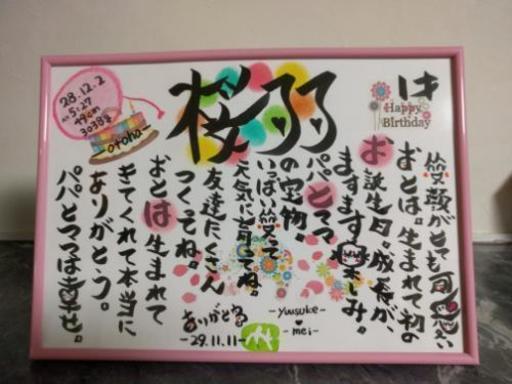 28.12.2
am 5:27
49cm
3038g
-otoha-
桜羽
Happy
Birthday
笑顔がとても可愛い
おとは。生まれて初の
お誕生日。成長が、
ますます楽しみ。
パパとママ
の宝物。
いっぱい笑って
元気に育ってね。
友達たくさん
つくってね。
おとは生まれて
きてくれて本当に
ありがとう。
パパとママは幸せ。
-yuusuke-
-mei-
ありがとう
-29.11.11-